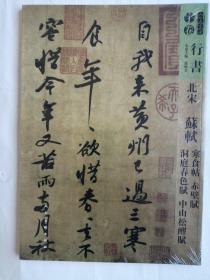 行書
北宋 蘇軾
寒食帖 赤壁賦
洞庭春色賦 中山松醪賦
自我來黃州已過三寒
食年〻欲惜春〻去不
容惜今年又苦雨兩月秋